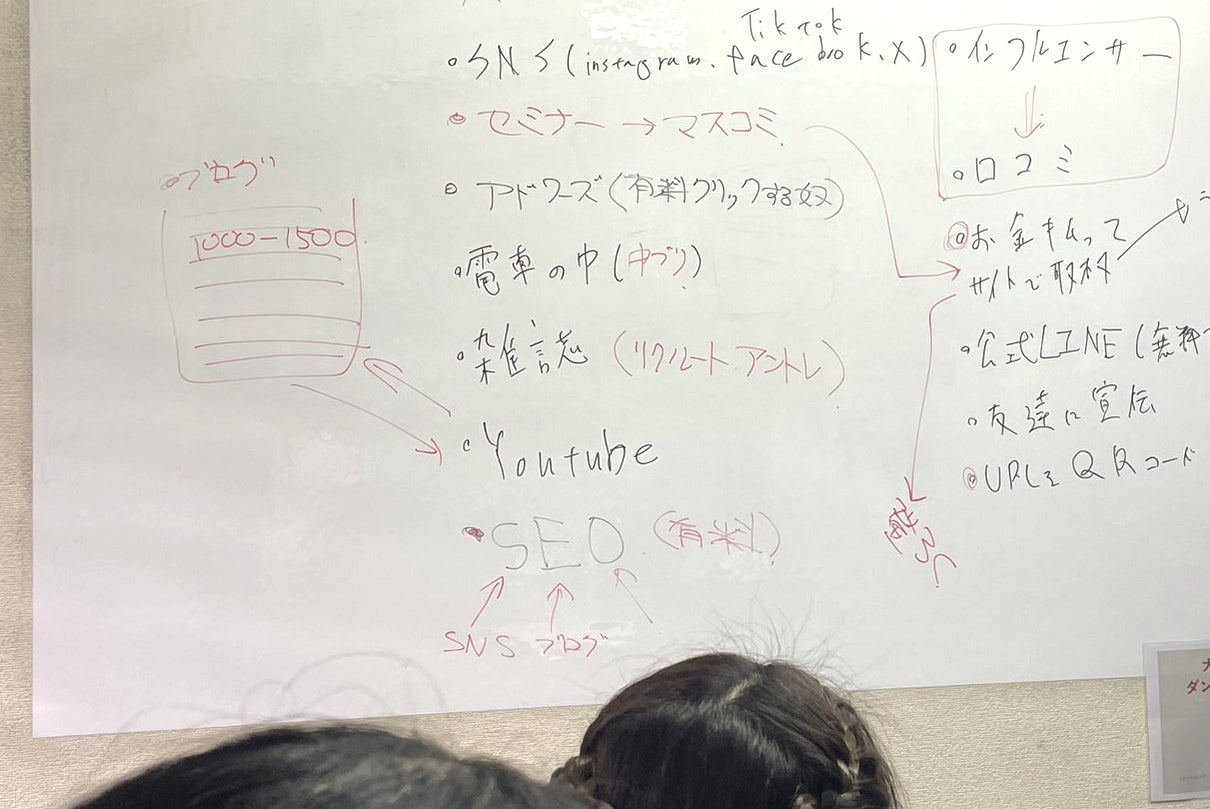 TikTok
・SNS(instagram.facebook.X)
・セミナー→マスコミ
・アドワーズ(有料クリックする奴)
・電車の中(中づり)
・雑誌(リクルート.アントレ)
・Youtube
・SEO(有料)
SNS ブログ
・ブログ
1000-1500
・インフルエンサー
↓
・口コミ
・お金払って
サイトで取材
・公式LINE(無料
・友達に宣伝
・URLを QRコード